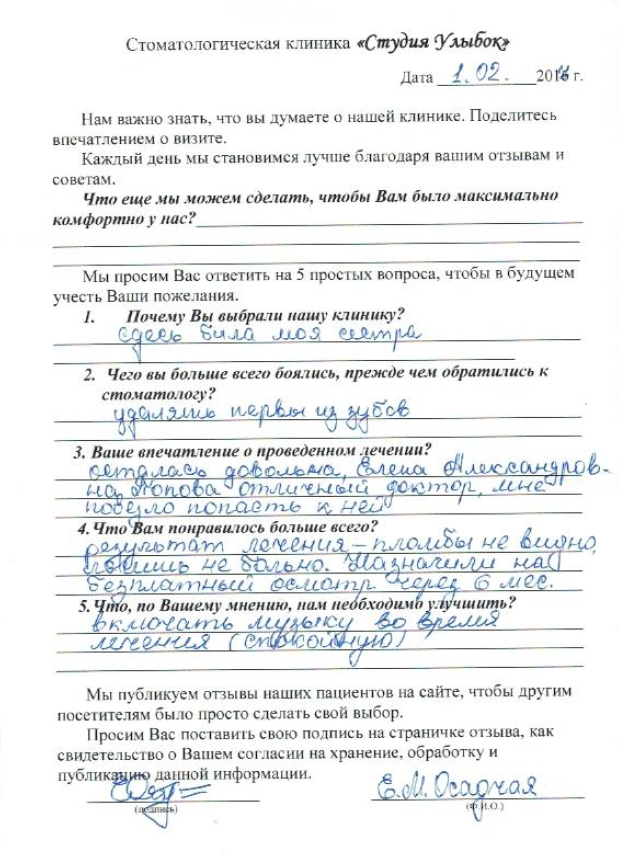 Стоматологическая клиника «Студия Улыбок»
Дата 1.02. 2016 г.
Нам важно знать, что вы думаете о нашей клинике. Поделитесь
впечатлением о визите.
Каждый день мы становимся лучше благодаря вашим отзывам и
советам.
Что еще мы можем сделать, чтобы Вам было максимально
комфортно у нас?
Мы просим Вас ответить на 5 простых вопроса, чтобы в будущем
учесть Ваши пожелания.
1. Почему Вы выбрали нашу клинику?
здесь была моя сестра
2. Чего вы больше всего боялись, прежде чем обратились к
стоматологу?
удалять нервы из зубов
3. Ваше впечатление о проведенном лечении?
осталась довольна, Елена Александров-
на Попова отличный доктор, мне
повезло попасть к ней
4. Что Вам понравилось больше всего?
результат лечения – пломбы не видно,
не больно. Назначили на
безплатный осмотр через 6 мес.
5. Что, по Вашему мнению, нам необходимо улучшить?
включать музыку во время
лечения (спокойную)
Мы публикуем отзывы наших пациентов на сайте, чтобы другим
посетителям было просто сделать свой выбор.
Просим Вас поставить свою подпись на страничке отзыва, как
свидетельство о Вашем согласии на хранение, обработку и
публикацию данной информации.
Е.М.Осадчая
(подпись) (Ф.И.О.)